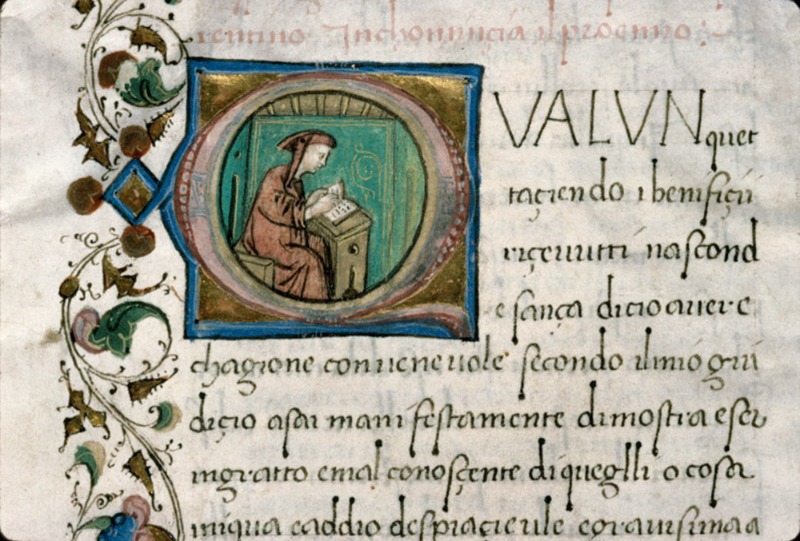 rentino Inchomincia il proemio :~
QVALVNque t
taciendo i benificii
ricevutti nascond
e sança di cio avere
chagione convenevole secondo il mio giu
dicio asai mani festamente dimostra eser
ingratto e mal conosciente di queglli o cosa
iniqua e addio despiacieule e gravisima a